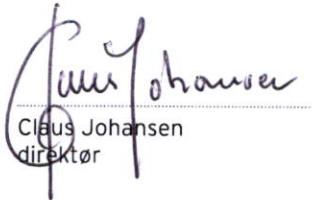 Claus Johansen
Claus Johansen
direktør